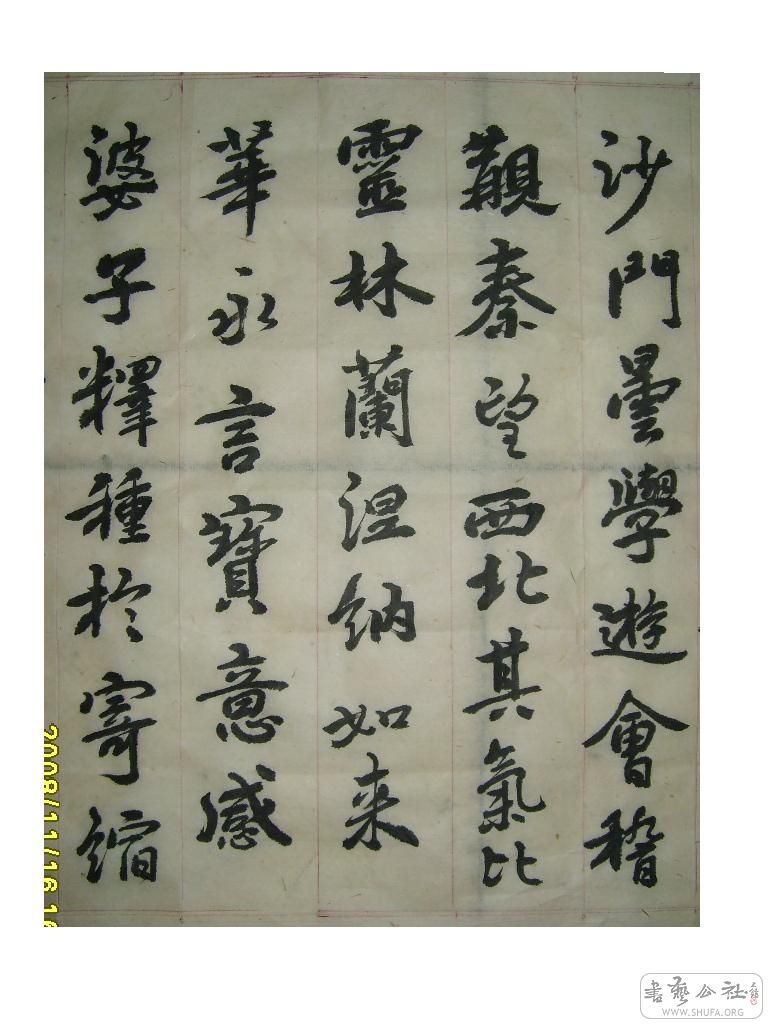 沙門曇學遊會稽
觀秦望西北其氣比
靈林蘭涅納如来
華永言寶意感
婆子釋種於寄縮
2008/11/16 1
書藝公社
WWW.SHUFA.ORG